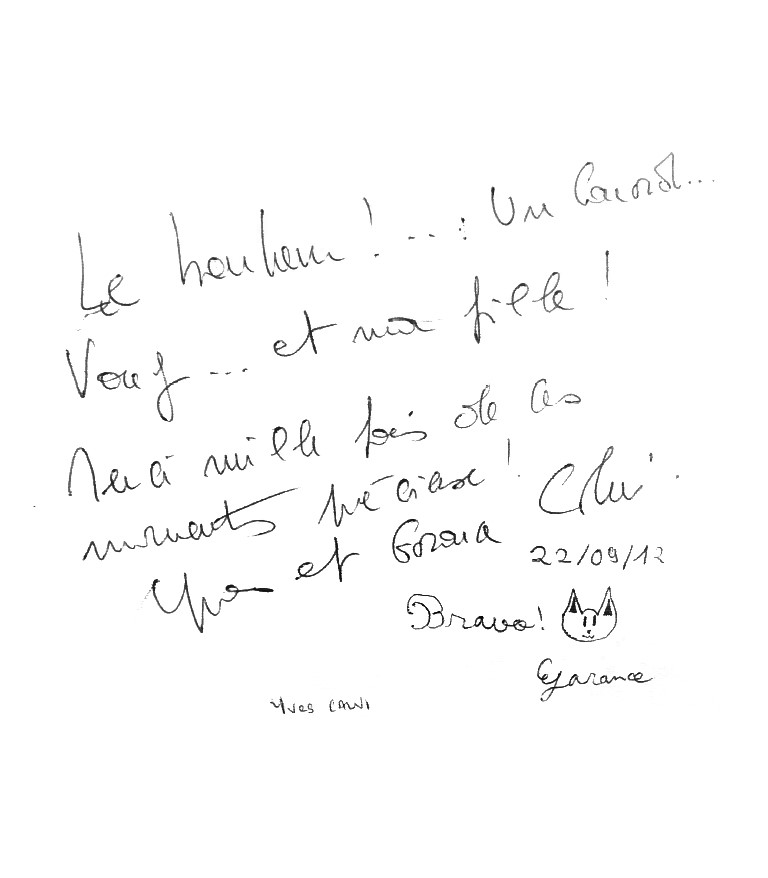 Le bonheur !... : Un Canard...
Vous... et ma fille !
Merci mille fois de ces
moments précieux !
Yves et Bravo
22/09/12
Bravo!
Garance
Yves CALVI